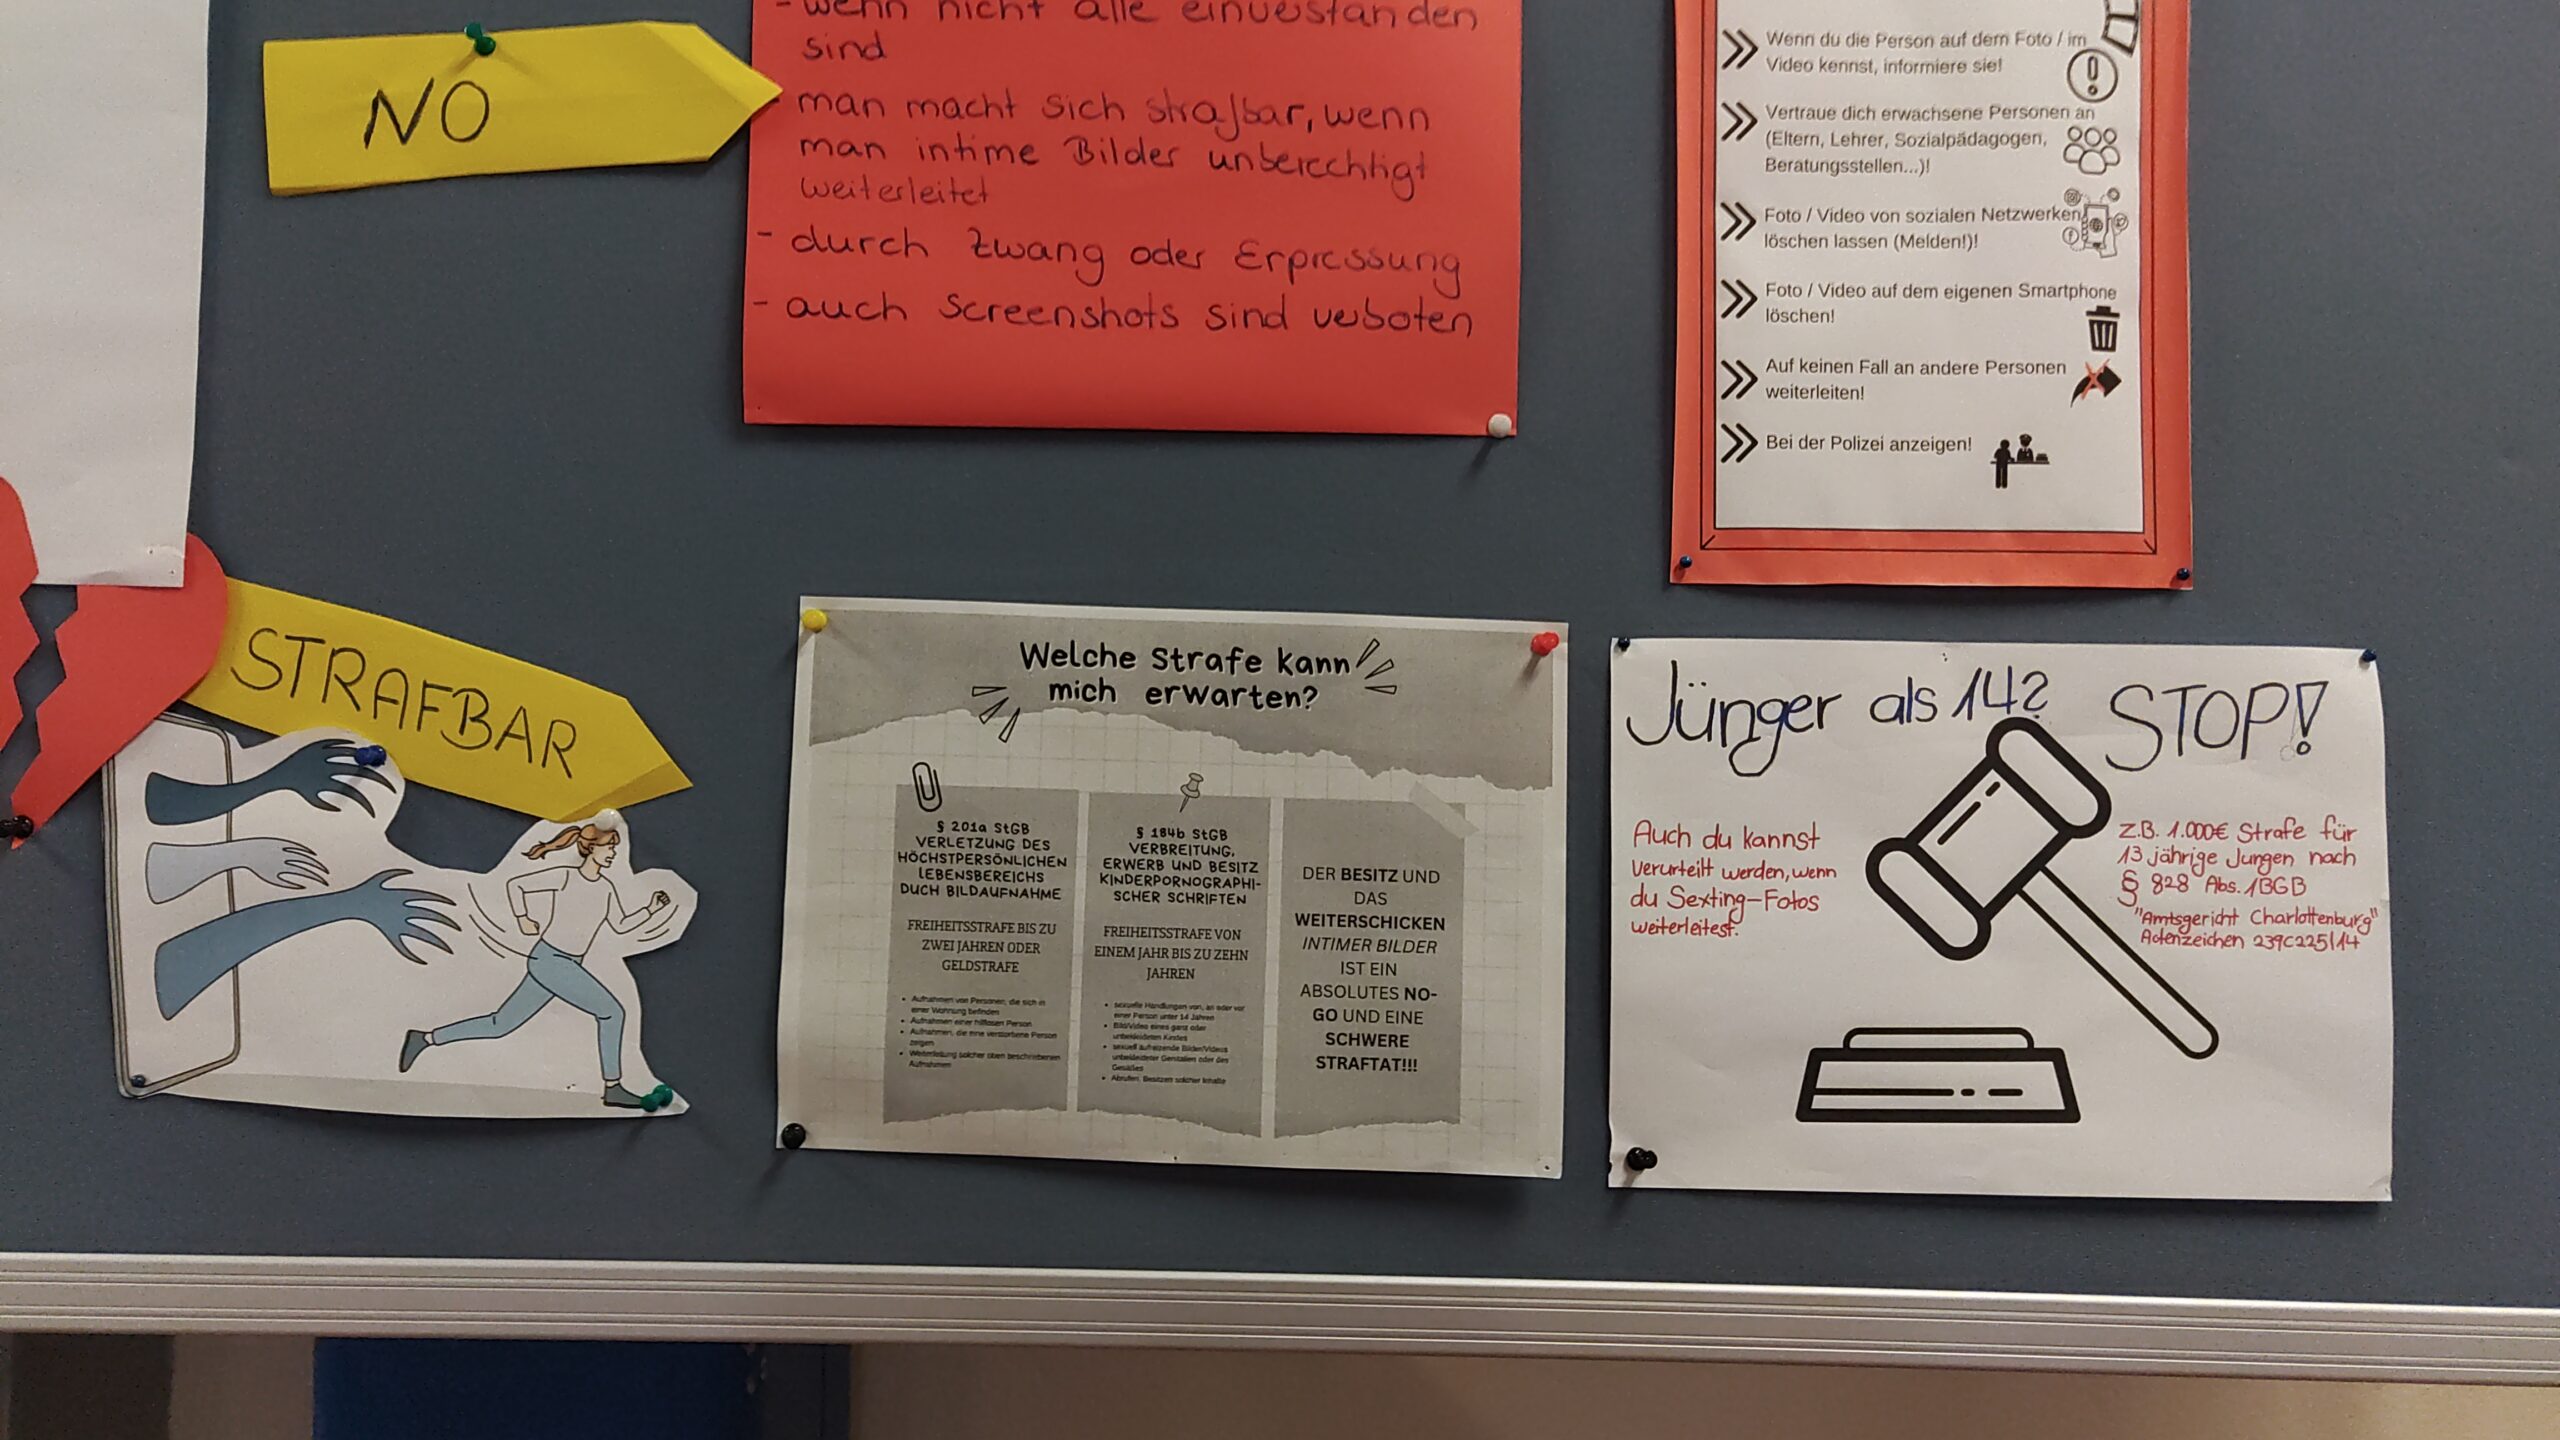 - wenn nicht alle einverstanden
sind
NO
man macht sich strafbar, wenn
man intime Bilder unberechtigt
weiterleitet
- durch Zwang oder Erpressung
- auch Screenshots sind verboten
Wenn du die Person auf dem Foto / im
Video kennst, informiere sie!
Vertraue dich erwachsene Personen an
(Eltern, Lehrer, Sozialpädagogen,
Beratungsstellen...)!
Foto / Video von sozialen Netzwerken
löschen lassen (Melden!)!
Foto / Video auf dem eigenen Smartphone
löschen!
Auf keinen Fall an andere Personen
weiterleiten!
Bei der Polizei anzeigen!
STRAFBAR
Welche Strafe kann
mich erwarten?
§ 201a StGB
VERLETZUNG DES
HÖCHSTPERSÖNLICHEN
LEBENSBEREICHS
DUCH BILDAUFNAHME
FREIHEITSSTRAFE BIS ZU
ZWEI JAHREN ODER
GELDSTRAFE
• Aufnahmen von Personen, die sich in
einer Wohnung befinden
• Aufnahmen einer hilflosen Person
• Aufnahmen, die eine verstorbene Person
zeigen
• Weiterleitung solcher oben beschriebenen
Aufnahmen
§ 184b StGB
VERBREITUNG,
ERWERB UND BESITZ
KINDERPORNOGRAPHI-
SCHER SCHRIFTEN
FREIHEITSSTRAFE VON
EINEM JAHR BIS ZU ZEHN
JAHREN
• sexuelle Handlungen von, an oder vor
einer Person unter 14 Jahren
• Bild/Video eines ganz oder
unbekleideten Kindes
• sexuell aufreizende Bilder/Videos
unbekleideter Genitalien oder des
Gesäßes
• Abrufen, Besitzen solcher Inhalte
DER BESITZ UND
DAS
WEITERSCHICKEN
INTIMER BILDER
IST EIN
ABSOLUTES NO-
GO UND EINE
SCHWERE
STRAFTAT!!!
Jünger als 14? STOP!
Auch du kannst
verurteilt werden, wenn
du Sexting-Fotos
weiterleitest.
z.B. 1.000€ Strafe für
13 jährige Jungen nach
§ 828 Abs. 1 BGB
"Amtsgericht Charlottenburg"
Actenzeichen 239C225/14